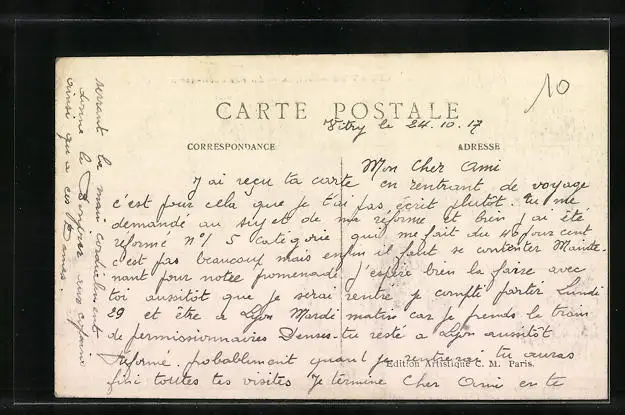 10
CARTE POSTALE
Vitry le 24.10.17
CORRESPONDANCE
ADRESSE
Mon Cher Ami
J'ai reçu ta carte en rentrant de voyage
c'est pour cela que je t'ai pas écrit plutôt. Tu me
demandé au sujet de ma réforme et bien j'ai été
réformé N°1 5 Catégorie qui me fait du 46 pour cent
c'est pas beaucoup mais enfin il faut se contenter Mainte-
nant pour notre promenade j'espère bien la faire avec
toi aussitôt que je serai rentré je compte partir Lundi
29 et être a Lyon Mardi matin car je prends le train
de permissionnaires Penses-tu resté a Lyon aussitôt
Réformé. probablement quant je rentrerai tu auras
fini toutes tes visites Je termine Cher Ami en te
Edition Artistique C. M. Paris.
serrant la main cordialement
donne le Bonjour aux copains
ainsi qu'a ces Dames